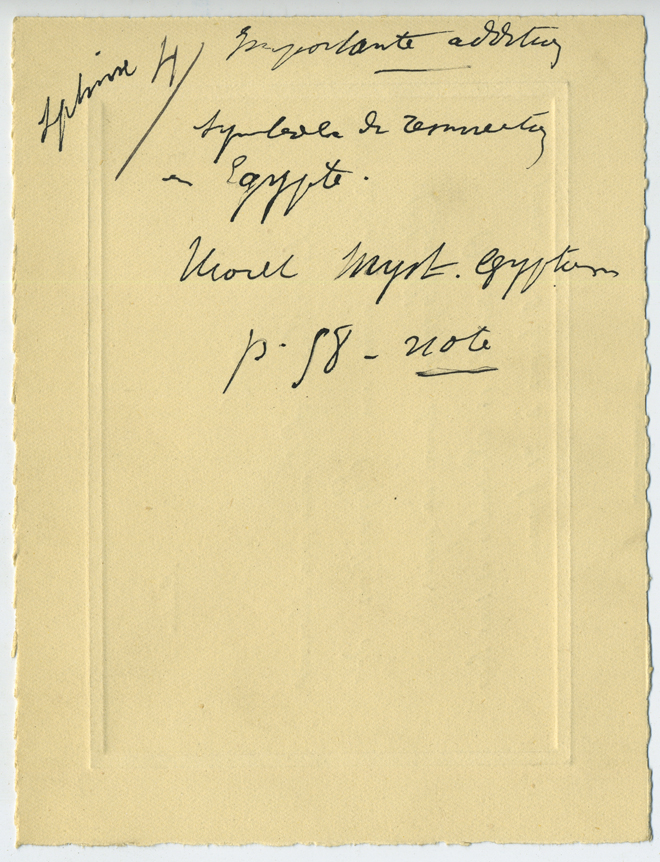 Sphinx 4/
Importante addition
Symboles de resurrection
en Egypte.
Moret Myst. Egyptiens
p. 58 - note